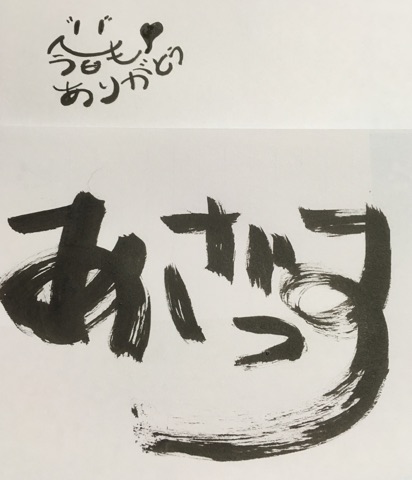 今日も
ありがとう
あざっす